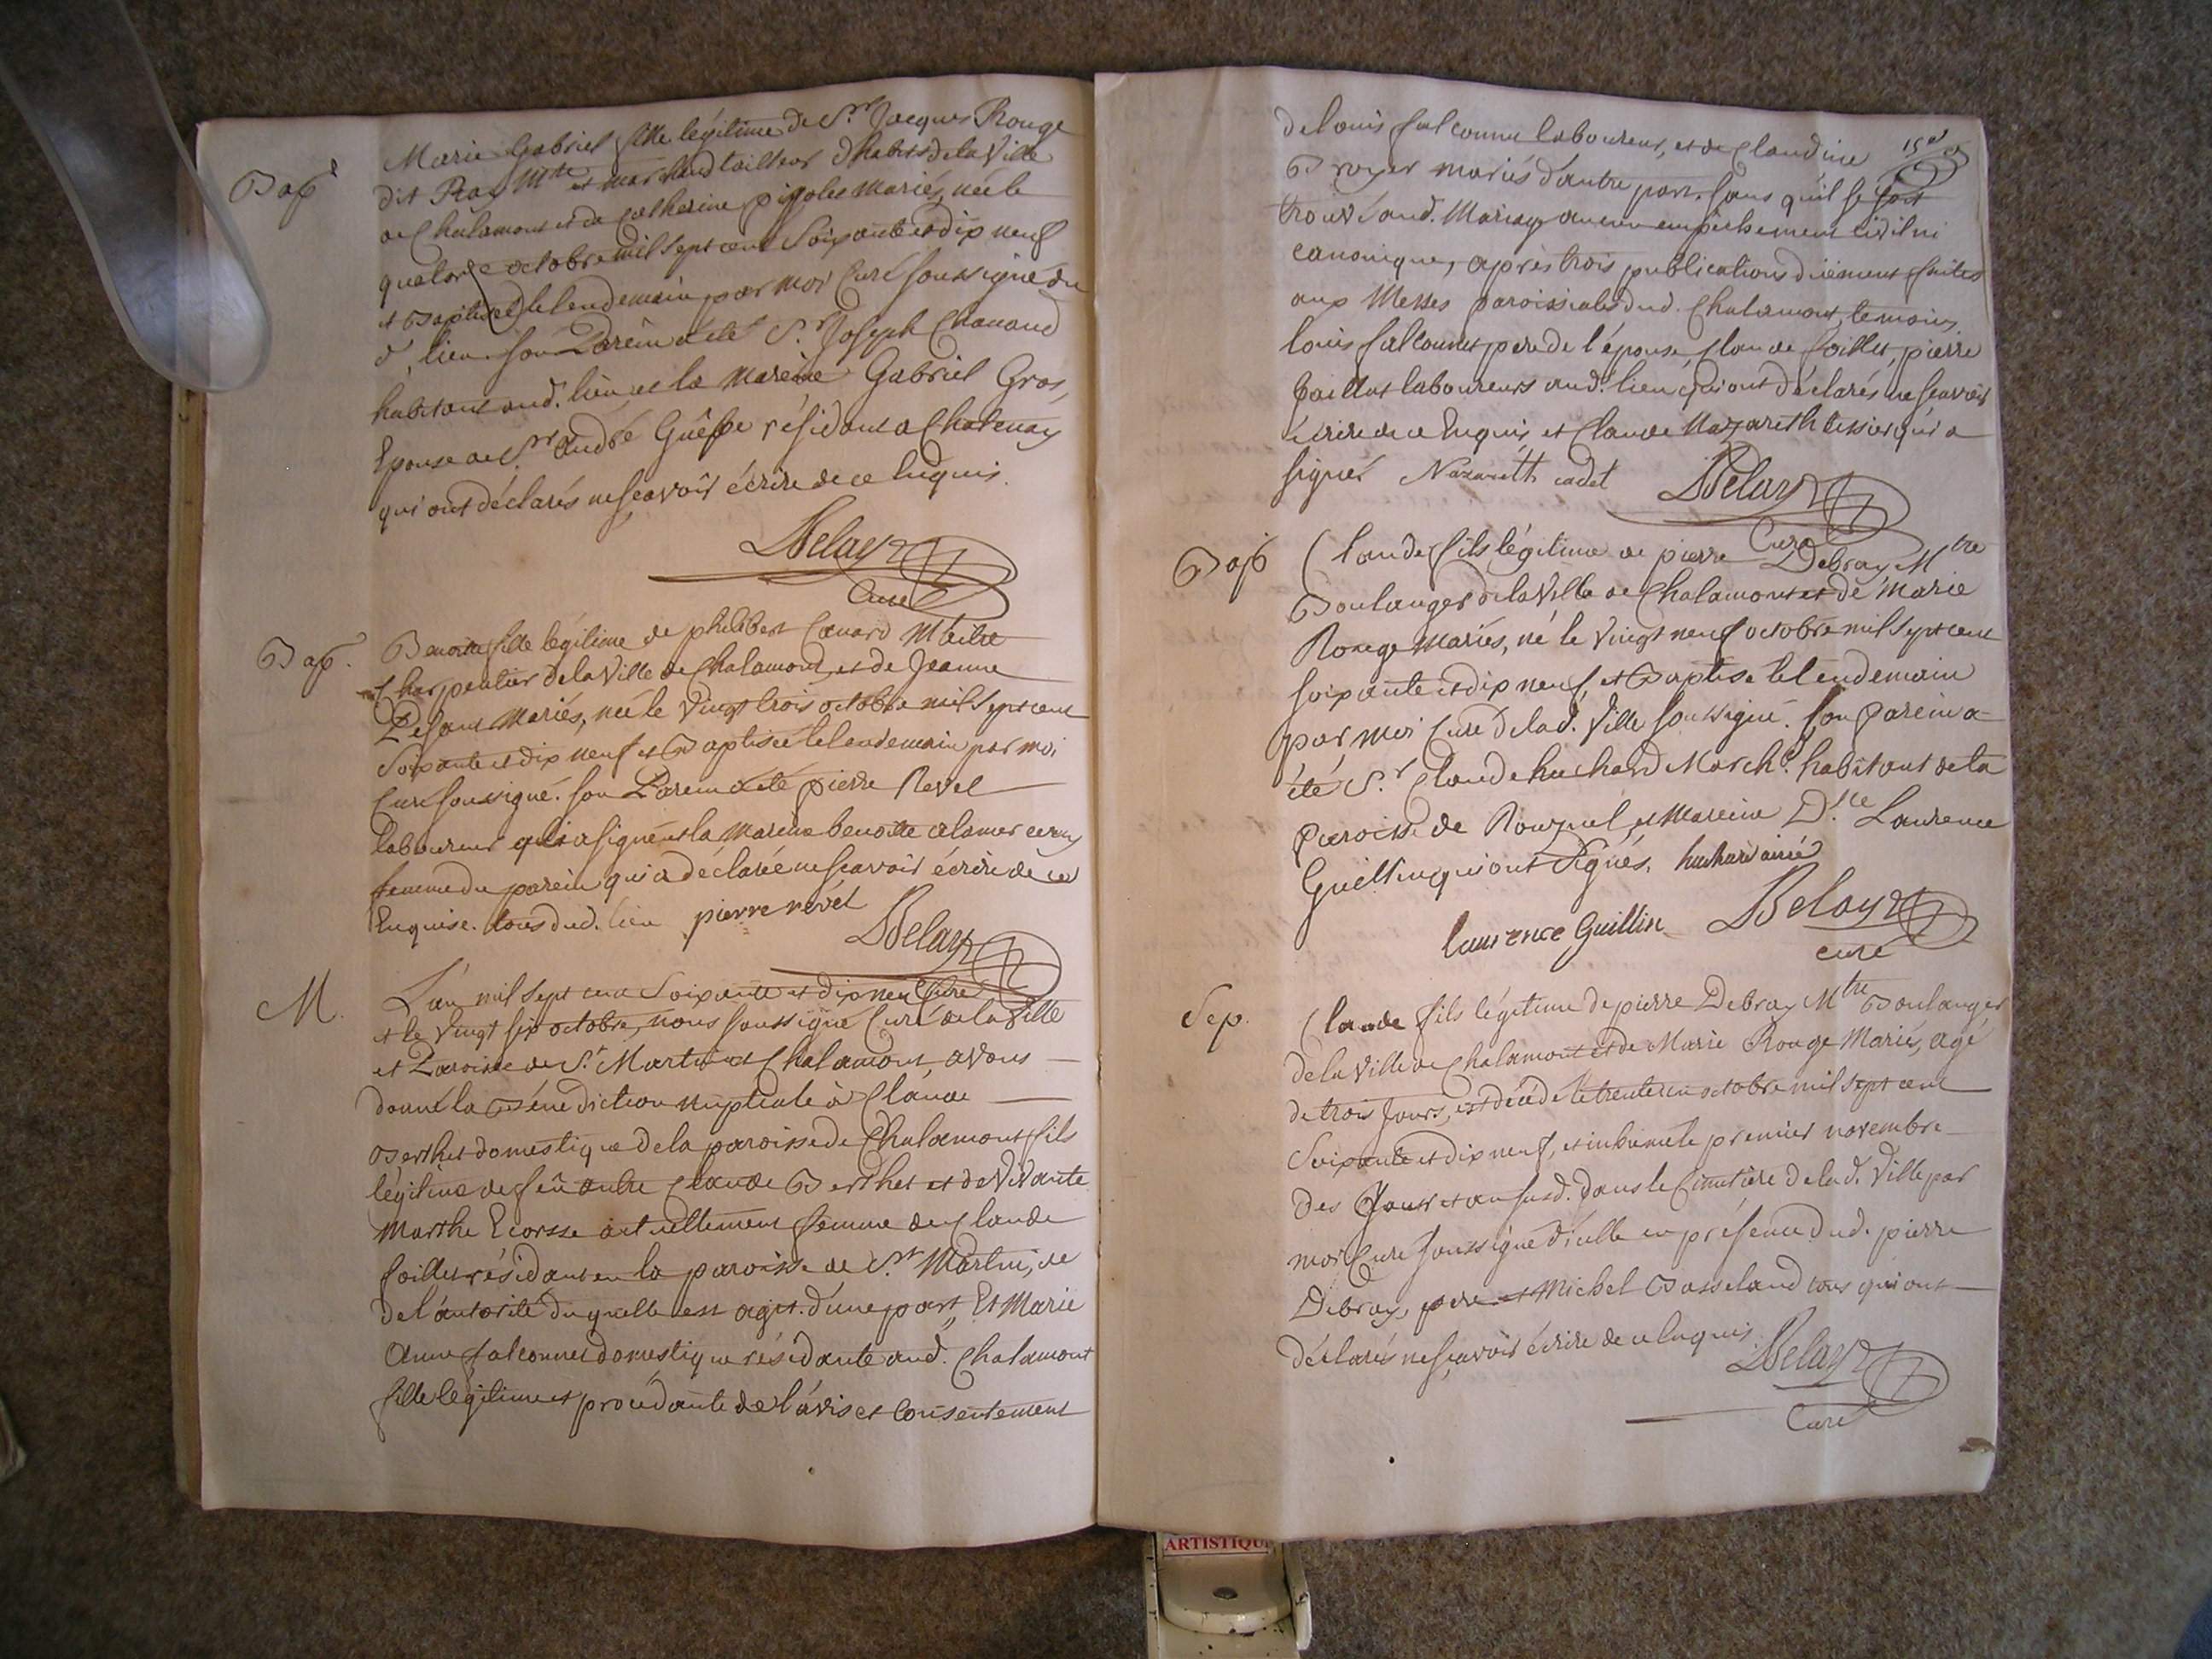 Bap.
Marie Gabriel fille légitime de Sr. Jacques Rouge
dit Ray Mtre et marchand tailleur d'habits de la Ville
de Chalamont et de Catherine pigoles mariés, née le
quatorze octobre mil sept cent Soixante et dix neuf
et Baptisée le lendemain par moi Curé soussigné du
d. lieu. son Parein a été Sr. Joseph Chanand
habitant aud. lieu, et la mareine Gabriel Gros,
Epouse de Sr. André Guêpe résidant a Chatenay
qui ont déclarés ne scavoir écrire de ce Enquis.
Delay
Curé
Bap.
Benoite fille légitime de philibert Canard Maitre
Charpentier de la Ville de Chalamont, et de Jeanne
mariés, née le Vingt trois octobre mil Sept cent
Soixante et dix neuf et Baptisée le lendemain par moi
Curé soussigné. son Parein a été pierre Revel
laboureur qui a signé et la Mareine benoite
femme du parein qui a déclarée ne scavoir écrire de ce
Enquise. tous dud. lieu pierre revel
Delay
Curé
M.
L'an mil sept cent Soixante et dix neuf
et le Vingt six octobre, nous soussigné Curé de la Ville
et Paroisse de St. Martin de Chalamont, avons
donné la Bénédiction nuptiale à Claude
Berthet domestique de la paroisse de Chalamont fils
légitime de feu autre Claude Berthet et de Vivante
Marthe Ecorsse actuellement femme de Claude
foillet résidant en la paroisse de St. Martin, de
de l'autorité duquelle est agit. d'une part, Et Marie
Anne falconnet domestique résidante aud. Chalamont
fille légitime et procédante de l'avis et Consentement
de louis falconnet laboureur, et de Claudine
Broyer mariés d'autre part. sans qu'il se soit
trouvé aud. Mariage aucun empêchement civil ni
canonique, après trois publications duement faites
aux Messes paroissiales dud. Chalamont, temoins
louis falconnet pere de l'épouse, Claude foillet, pierre
paillet laboureurs aud. lieu qui ont déclarés ne scavoir
écrire de ce Enquis et Claude Nazareth tessier qui a
signé. Nazareth cadet Delay
Curé
Bap
Claude fils légitime de pierre Debray Mtre
Boulanger de la Ville de Chalamont et de Marie
Rouge Mariés, né le Vingt neuf octobre mil Sept cent
soixante et dix neuf, et Baptisé le lendemain
par moi Curé de lad. Ville soussigné. son parein a
été Sr. Claude huchard March. habitant de la
Paroisse de Ronzuel, et mareine Dlle Laurence
Guillin qui ont Signés. huchard ainé
Laurence Guillin Delay
curé
Sep.
Claude fils légitime de pierre Debray Mtre Boulanger
de la Ville de Chalamont et de Marie Rouge Mariés, agé
de trois Jours, est décédé le trente un octobre mil sept cent
Soixante et dix neuf, et inhumé le premier novembre
des Jour et an susd. dans le Cimetière de lad. Ville par
moi Curé soussigné d'icelle en présence dud. pierre
Debray, pere et Michel Basseland tous qui ont
déclarés ne scavoir écrire de ce Enquis
Delay
Curé
ARTISTIQU